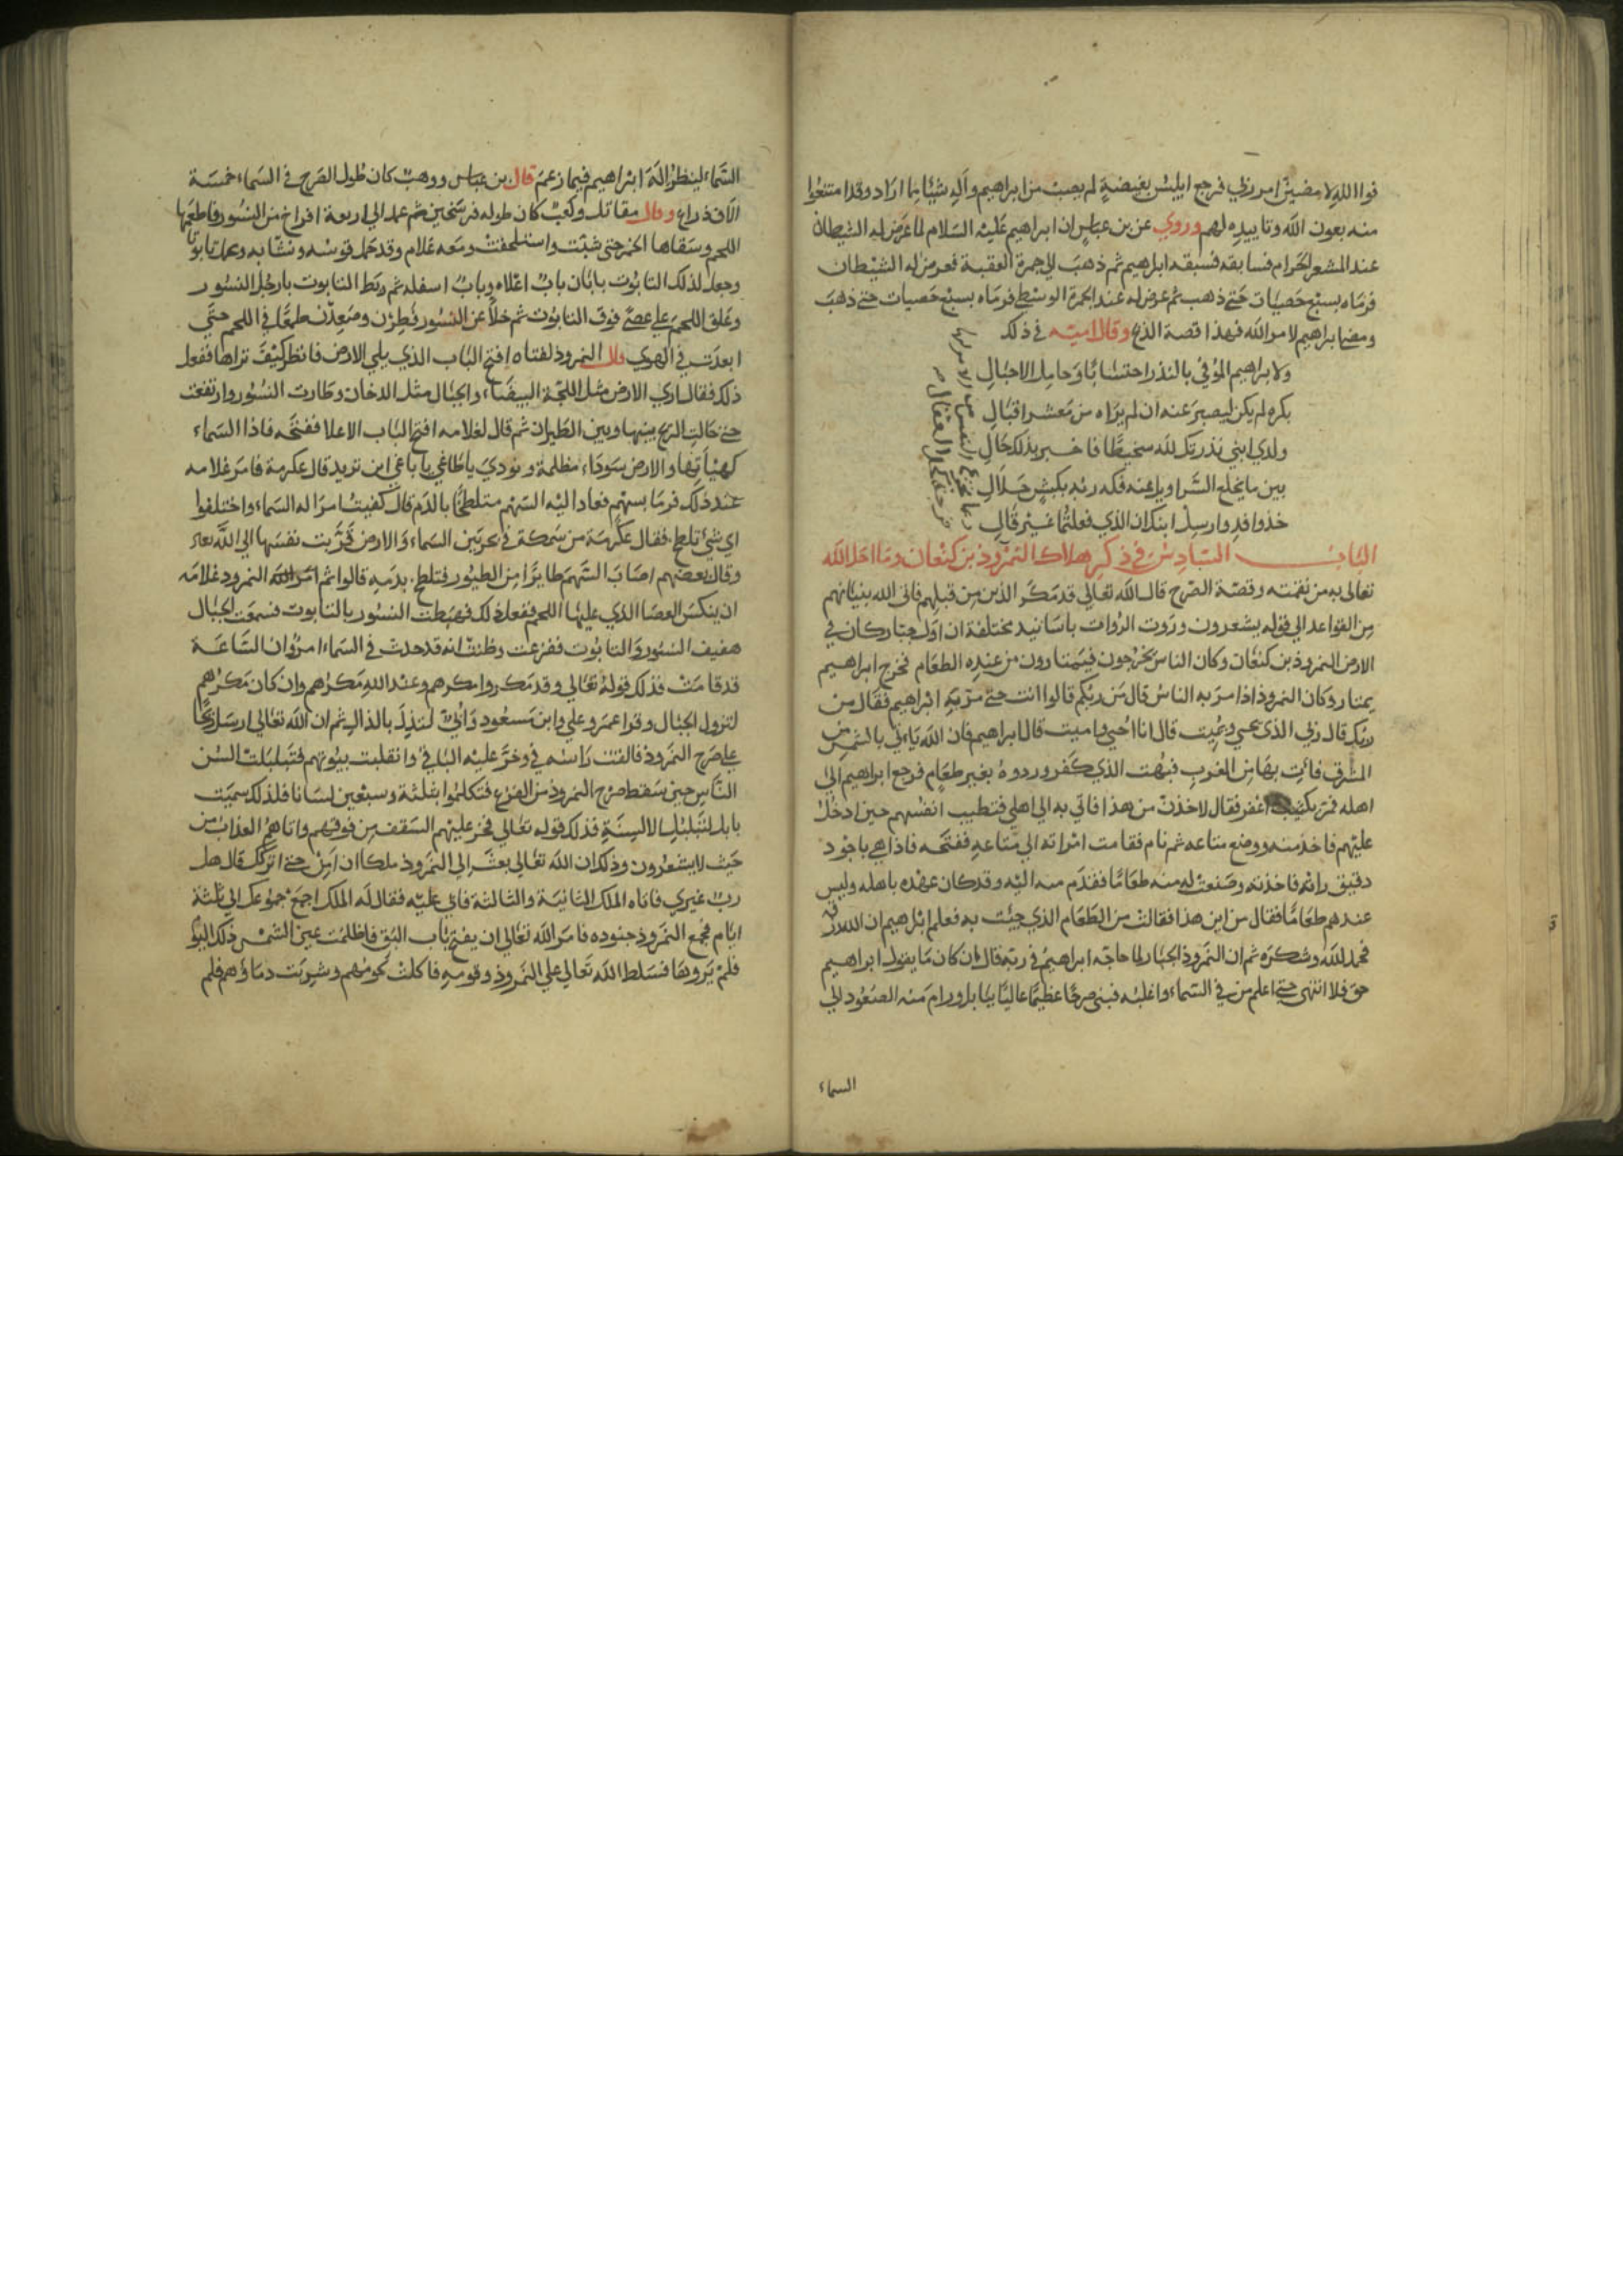 فوالله لامضين امر ربي فرجع ابليس بغيضة لم يصب من ابراهيم واله شيئا مما اراد وقد امتنعوا
منه بعون الله وتاييده لهم وروي عن بن عباس ان ابراهيم عليه السلام لما عرض له الشيطان
عند المشعر الحرام فسابقه فسبقه ابراهيم ثم ذهب الى جمرة العقبة فعرض له الشيطان
فرماه بسبع حصيات حتى ذهب ثم عرض له عند الجمرة الوسطي فرماه بسبع حصيات حتى ذهب
ومضا ابراهيم لامر الله فهذا قصة الذبح وقال امية في ذلك
ولابراهيم الموفي بالنذر احتسابا وحامل الاجبال
بكره لم يكن ليصبر عنه ان لم يراه من معشر اقبال
ولدي ابني نذرتك لله سخيطا فاخبر بذلك حال
بين ما يخلع السرابيل عنه فكه ربه بكبش جلال
خذوا فدوا رسل ابنك ان الذي فعلتما غير قال
ربما تجزع النفس من الامر لها
فرجة كحل العقال
الباب السادس في ذكر هلاك النمرود بن كنعان وما احل الله
تعالى به من نقمته وقصة الصرح قال الله تعالي قد مكر الذين من قبلهم فاتى الله بنيانهم
من القواعد الي قوله يشعرون وروت الروات باسانيد مختلفة ان اول جبار كان في
الارض النمرود بن كنعان وكان الناس يخرجون فيمتارون من عنده الطعام فخرج ابراهيم
يمتار وكان النمرود اذا مر به الناس قال من ربكم قالوا انت حتى مر به ابراهيم فقال من
ربك قال ربي الذي يحيي ويميت قال انا احيي واميت قال ابراهيم فان الله ياتي بالشمس من
المشرق فات بها من الغرب فبهت الذي كفر وردوه بغير طعام فرجع ابراهيم الى
اهله فمر بكثيب اعفر فقال لاخذن من هذا فاتي به الي اهلي فتطيب انفسهم حين ادخل
عليهم فاخذ منه ووضع متاعه ثم نام فقامت امراته الي متاعه ففتحه فاذا هي باجود
دقيق راته فاخذته وصنعت له منه طعاما فقدم منه اليه وقد كان عهده باهله وليس
عندهم طعاما فقال من اين هذا فقالت من الطعام الذي جيت به فعلم ابراهيم ان الله رزقه
فحمد لله وشكره ثم ان النمروذ الجبار لما حاجه ابراهيم في ربه قال ان كان ما يقول ابراهيم
حق فلا انتهى حتى اعلم من في السماء واغلبه فبنى صرحا عظيما عاليا ببابل ورام منه الصعود الى
السماء
السماء لينظر اله ابراهيم فيما زعم قال بن عباس ووهب كان طول الصرح في السماء خمسة
الاف ذراع وقال مقاتل وكعب كان طوله فرسخين ثم عمد الي اربعة افراخ من النسور فاطعمها
اللحم وسقاها الخمر حتى شبت واستلحفت ومعه غلام وقد حمل قوسه ونشابه وعمل تابوتا
وجعل لذلك التابوت بابان باب اعلاه وباب اسفله ثم ربط التابوت بارجل النسور
وعلق اللحم على عصي فوق التابوت ثم خلا عن النسور فطرن وصعدن طمعا في اللحم حتي
ابعدت في الهوي قال النمروذ لفتاه افتح الباب الذي يلي الارض فانظر كيف تراها ففعل
ذلك فقال اري الارض مثل اللجة البيضاء والجبال مثل الدخان وطارت النسور وارتفعت
حتى حالت الريح بينها وبين الطيران ثم قال لغلامه افتح الباب الاعلا ففتحه فاذا السماء
كهيأتها والارض سوداء مظلمة ونودي ياطاغي ياباغي اين تريد قال عكرمة فامر غلامه
عند ذلك فرما بسهم فعاد اليه السهم متلطخا بالدم قال كفيت امر اله السماء واختلفوا
اي شئ تلطخ فقال عكرمة من سمكة في بحر بين السماء والارض قربت نفسها الي الله تعالى
وقال بعضهم اصاب السهم طايرا من الطيور فتلطخ بدمه قالوا ثم امر الله النمرود غلامه
ان ينكس العصا الذي عليها اللحم ففعل ذلك فهبطت النسور بالتابوت فسمعت الجبال
هفيف النسور والتابوت ففزعت وظنت انه قد حدث في السماء امر وان الساعة
قد قامت فذلك قوله تعالي وقد مكروا مكرهم وعند الله مكرهم وان كان مكرهم
لتزول الجبال وقرا عمر وعلي وابن مسعود وأبي لتذل بالذال ثم ان الله تعالى ارسل ريحا
على صرح النمروذ فالقت راسه في وخر عليه الباقي وانقلبت بيوتهم فتبلبلت السن
الناس حين سقط صرح النمروذ من الفزع فتكلموا بثلثة وسبعين لسانا فلذلك سميت
بابل لتبلبل الالسنة فذلك قوله تعالي فخر عليهم السقف من فوقهم واتاهم العذاب من
حيث لا يشعرون وذلك ان الله تعالي بعث الي النمروذ ملكا ان امن حتى اتركك قال هل
رب غيري فاتاه الملك الثانية والثالثة فابي عليه فقال له الملك اجمع جموعك الي ثلثة
ايام فجمع النمروذ جنوده فامر الله تعالي ان يفتح باب البق فاظلمت عين الشمس ذلك اليوم
فلم يروها فسلط الله تعالي علي النمروذ وقومه فاكلت لحومهم وشربت دماؤهم فلم